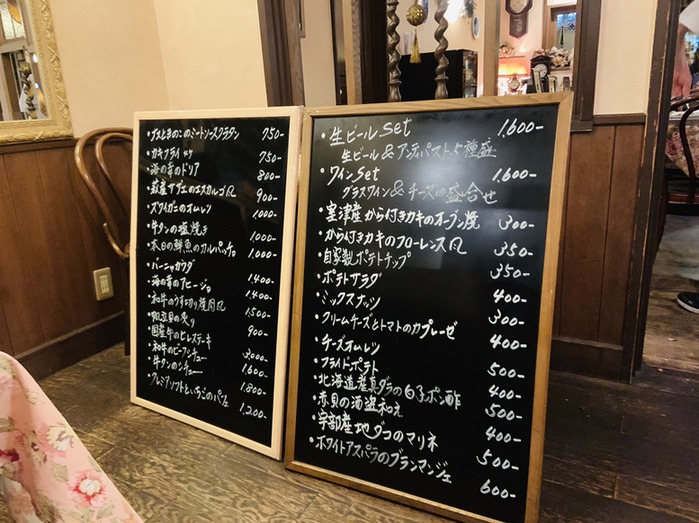 ・グエときのこのミートソースグラタン 750-
・カキフライ 2ヶ 750-
・海の幸のドリア 800-
・萩産サザエのエスカルゴ風 900-
・ズワイガニのオムレツ 1000-
・牛タンの塩焼き 1,000-
・本日の鮮魚のカルパッチョ 1,000-
・バーニャカウダ 1,400-
・海の幸のアヒージョ 1,400-
・和牛のうす切り焼肉風 1,500-
・帆立貝の炙り 900-
・国産牛のヒレステーキ 3000-
・和牛のビーフシチュー 1,600-
・牛タンのシチュー 1,800-
・プレミアソフトといちごのパフェ 1,200-
・生ビール set 1,600-
生ビール & アンティパスト5種盛
・ワイン Set 1,600-
グラスワイン & チーズの盛合せ
・室津産から付きカキのオーブン焼 300-
・から付きカキのフローレンス風 350-
・自家製ポテトチップ 350-
・ポテトサラダ 400-
・ミックスナッツ 300-
・クリームチーズとトマトのカプレーゼ 400-
・チーズオムレツ 500-
・フライドポテト 400-
・北海道産真ダラの白子ポン酢 500-
・赤貝の酒盗和え 400-
・宇部産地ダコのマリネ 500-
・ホワイトアスパラのブランマンジェ 600-